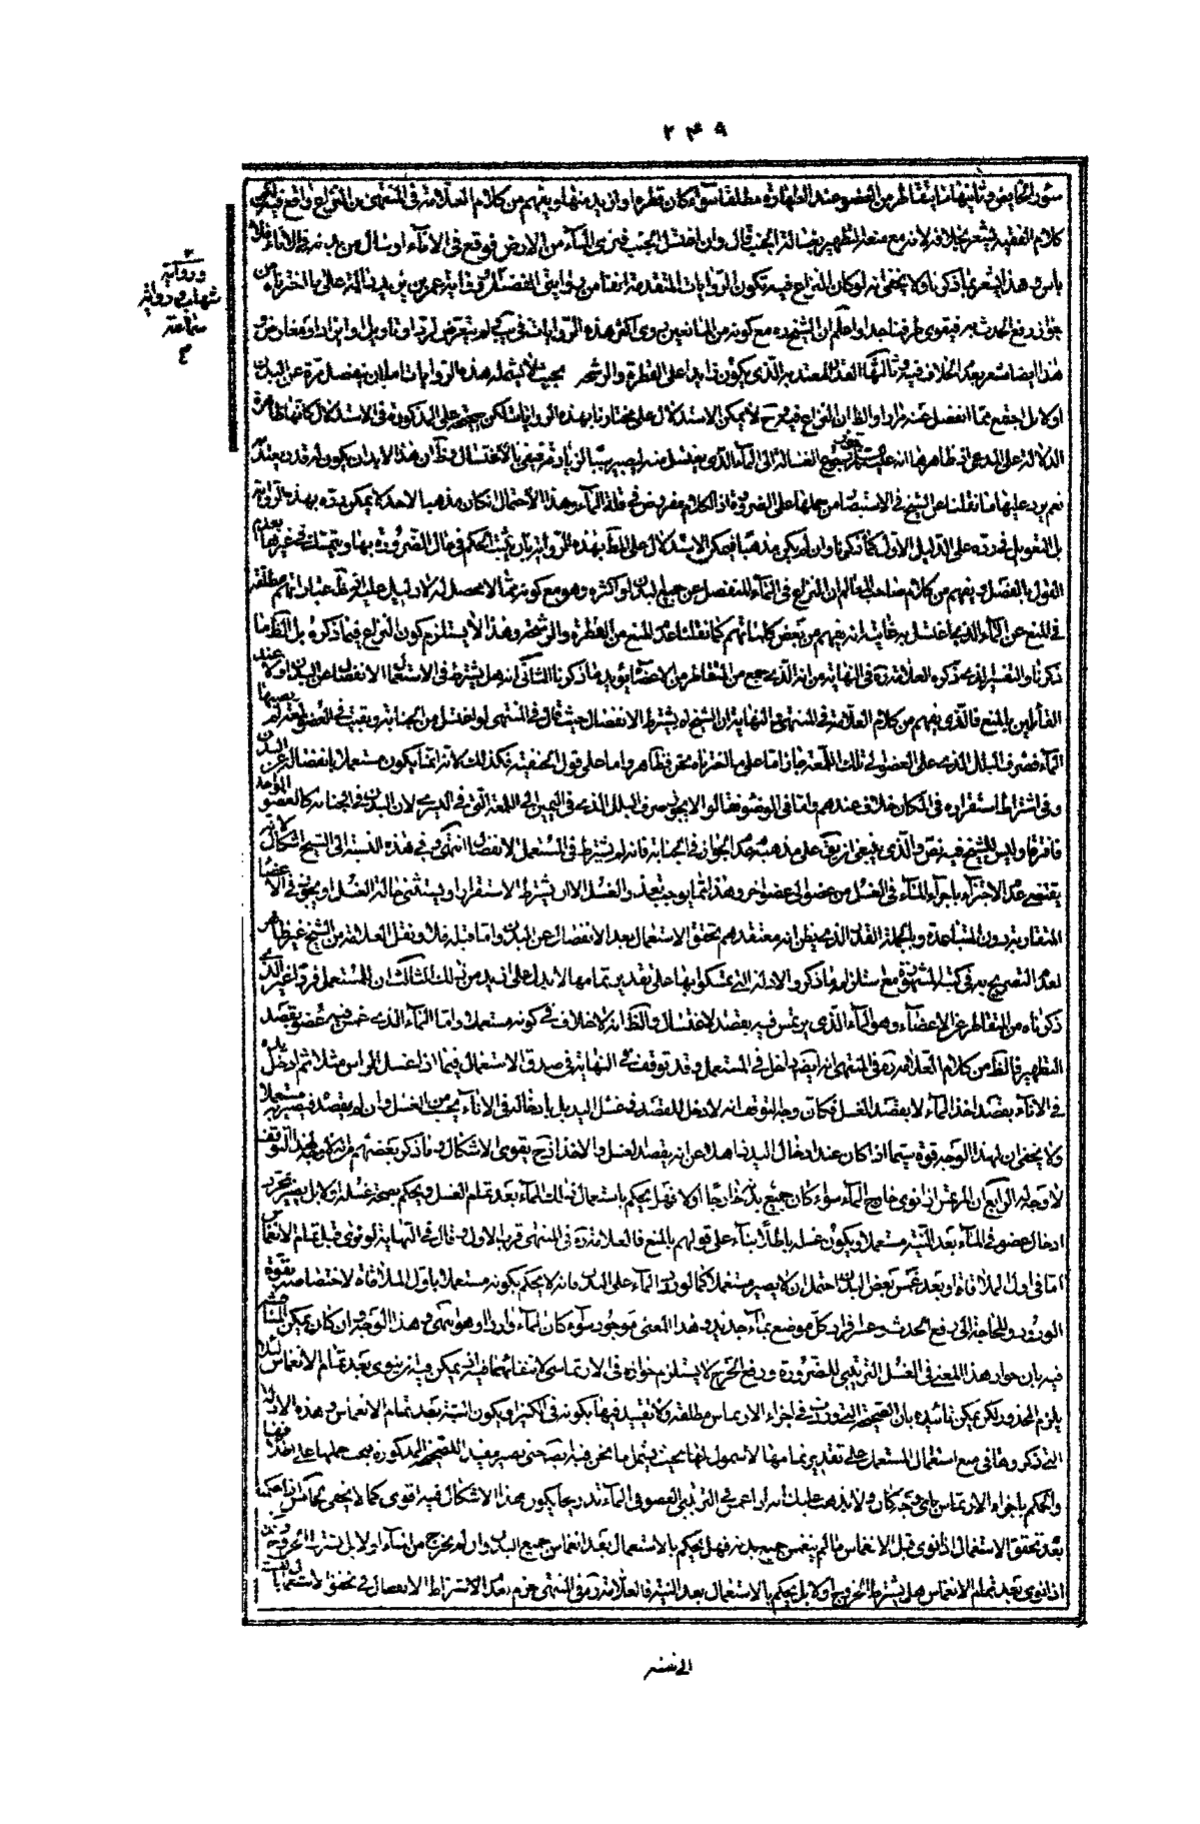 ٢٤٩
سؤر الحايض وثانيها ما يتقاطر من العضو عند الطهارة مطلقا سواء كان قطرة او ازيد منها ويفهم من كلام العلامة في المنتهى ان النزاع واقع فيه لكن
كلام الفقيه يشعر بخلافه لانه مع منعه التطهير بغسالة الجنب قال وان اغتسل الجنب فنزى الماء من الارض فوقع في الاناء او سال من بدنه في الاناء فلا
باس وهذا يشعر بما ذكرنا ولا يخفى انه لو كان النزاع فيه تكون الروايات المتقدمة انفا من روايتي الفضيل ورواية عمر بن يزيد دالة على ما اخترناه من
جواز رفع الحدث به فيقوى طرفنا جدا واعلم ان الشيخ ره مع كونه من المانعين روى اكثر هذه الروايات في يب ولم يتعرض لرد او تاويل او ايراد معارض
هذا ايضا مشعر بعدم الخلاف فيه وثالثها القدر المعتد به الذي يكون زايدا على القطرة والرشحة بحيث لا يشمله هذه الروايات اما بان ينفصل مرة عن البدن
او لا بل اجتمع مما انفصل عنه مرارا والظ ان النزاع فيه وح لا يمكن الاستدلال على مختارنا بهذه الروايات لكن صحيحة على المذكورة في الاستدلال كانها ظاهرة
الدلالة على المدعى اذ ظاهرها انه عليه السلم جوز رجوع الغسالة الى الماء الذي يغتسل منه ليصير سببا لزيادته فيفي بالاغتسال وظ ان هذا لا بد ان يكون له قدر يعتد
نعم يرد عليها ما نقلنا عن الشيخ في الاستبصار من حملها على الضرورة اذ الكلام مفروض في قلة الماء وهذا الاحتمال ان كان مذهبا لاحد لا يمكن رده بهذه الرواية
بل التعويل في رده على الدليل الاول كما ذكرنا وان لم يكن مذهبا فيمكن الاستدلال على المط بهذه الرواية بان يثبت الحكم في حال الضرورة بها ويتمسك في غيرها بعدم
القول بالفصل ويفهم من كلام صاحب المعالم ان النزاع في الماء المنفصل عن جميع البدن او اكثره وهو مع كونه مما لا محصل له لا دليل عليه اذ ظ عباراتهم مطلقة
في المنع عن الماء الذي اغتسل به غايته انه يفهم من بعض كلماتهم كما نقلنا عدم المنع من القطرة والرشحة وهذا لا يستلزم كون النزاع فيما ذكره بل الظ ما
ذكرنا والتفسير الذي ذكره العلامة ره في النهاية من انه الذي جمع من المتقاطر من الاعضاء يؤيد ما ذكرنا الثاني انه هل يشترط في الاستعمال الانفصال عن البدن او لا عند
القائلين بالمنع فالذي يفهم من كلام العلامة في المنتهى والنهاية ان الشيخ ره يشترط الانفصال حيث قال في المنتهى لو اغتسل من الجنابة وبقيت في العضو لمعة لم يصبها
الماء فصرف البلل الذي على العضو الى تلك اللمعة جاز اما على ما اخترناه نحن فظاهر واما على قول الحنفية فكذلك لانه انما يكون مستعملا بانفصاله عن البدن
وفي اشتراط استقراره في المكان خلاف عندهم واما في الوضوء فقالوا لا يجوز صرف البلل الذي في اليمين الى اللمعة التي في اليسرى لان البدن في الجنابة كالعضو الواحد
فافترقا وليس للشيخ فيه نص والذي ينبغي ان يق على مذهبه عدم الجواز في الجنابة فانه لم يشترط في المستعمل الانفصال انتهى وفي هذه النسبة الى الشيخ اشكال لانه
يقتضي عدم الاجتزاء باجراء الماء في الغسل من عضو الى عضو اخر وهذا مما يوجب تعذر الغسل الا ان يشترط الاستقرار او يستثنى حالة الغسل او يخص في الاعضاء
المتقاربة دون المتباعدة وبالجملة القدر الذي يظن انه معتقدهم تحقق الاستعمال بعد الانفصال عن البدن واما قبله فلا ونقل العلامة عن الشيخ غير ظاهر
لعدم التصريح به في كتبه المشهورة مع استلزامه ما ذكر والادلة التي تمسكوا بها على تقدير تمامها لا يدل على ازيد من ذلك الثالث ان للمستعمل فردا غير الذي
ذكرناه من المتقاطر عن الاعضاء وهو الماء الذي يرتمس فيه بقصد الاغتسال والظ انه لا خلاف في كونه مستعملا واما الماء الذي غمس فيه عضو بقصد
التطهير فالظ من كلام العلامة ره في المنتهى انه ايضا داخل في المستعمل وقد توقف في النهاية في صدق الاستعمال فيما اذا غسل الراس مثلا ثم ادخل يده
في الاناء بقصد اخذ الماء لا بقصد الغسل فكان وجه التوقف انه لا دخل للقصد في غسل اليد بل بادخاله في الاناء يحسب من الغسل وان لم يقصد فيصير به مستعملا
ولا يخفى ان لهذا الوجه قوة سيما اذا كان عند ادخال اليد ذاهلا عن انه يقصد الغسل او الاخذ اذ ح يقوى الاشكال وما ذكر بعضهم من انه لا وجه لهذا التوقف
لا وجه له الرابع ان المرتمس اذا نوى خارج الماء سواء كان جميع بدنه خارجا او لا فهل يحكم باستعمال ذلك الماء بعد تمام الغسل ويحكم بصحة غسله او لا بل يصير بمجرد
ادخال عضو في الماء بعد النية مستعملا ويكون غسله باطلا بناء على قولهم بالمنع فالعلامة ره في المنتهى قرب الاول وقال في النهاية لو نوى قبل تمام الانغماس
اما في اول الملاقاة او بعد غمس بعض البدن احتمل ان لا يصير مستعملا كما لو ورد الماء على البدن فانه لا يحكم بكونه مستعملا باول الملاقاة لاختصاصه بقوة
الورود وللحاجة الى رفع الحدث وعسر افراد كل موضع بماء جديد وهذا المعنى موجود سواء كان الماء واردا او هو انتهى وهذا الوجه وان كان يمكن المناقشة
فيه بان جواز هذا المعنى في الغسل الترتيبي للضرورة ورفع الحرج لا يستلزم جوازه في الارتماسي لانتفائهما فيه اذ يمكن فيه ان ينوي بعد تمام الانغماس لئلا
يلزم المحذور لكن يمكن تأييده بان الصحيحة التي وردت في اجزاء الارتماس مطلقة ولا تقييد فيها بكونه في الكثير او يكون النية بعد تمام الانغماس وهذه الادلة
التي ذكروها في منع استعمال المستعمل على تقدير تمامها لا شمول لها بحيث يشمل ما نحن فيه ايضا حتى يصير مقيد الصحيحة المذكورة فيجب حملها على اطلاقها
والحكم باجزاء الارتماس باي وجه كان ولا يذهب عليك انه اذا غمس في الترتيبي العضو في الماء تدريجا يكون هذا الاشكال فيه اقوى كما لا يخفى الخامس انه هل
بعد تحقق الاستعمال اذا نوى قبل الانغماس ما لم ينغمس جميع بدنه فهل يحكم بالاستعمال بعد انغماس جميع البدن وان لم يخرج من الماء او لا بل يشترط الخروج وكذا
اذا نوى بعد تمام الانغماس هل يشترط الخروج او لا بل يحكم بالاستعمال بعد النية فالعلامة ره في المنتهى جزم بعدم الاشتراط الانفصال في تحقق الاستعمال
ورواية
شهاب ورواية
سماعة
ع
الى نفسه